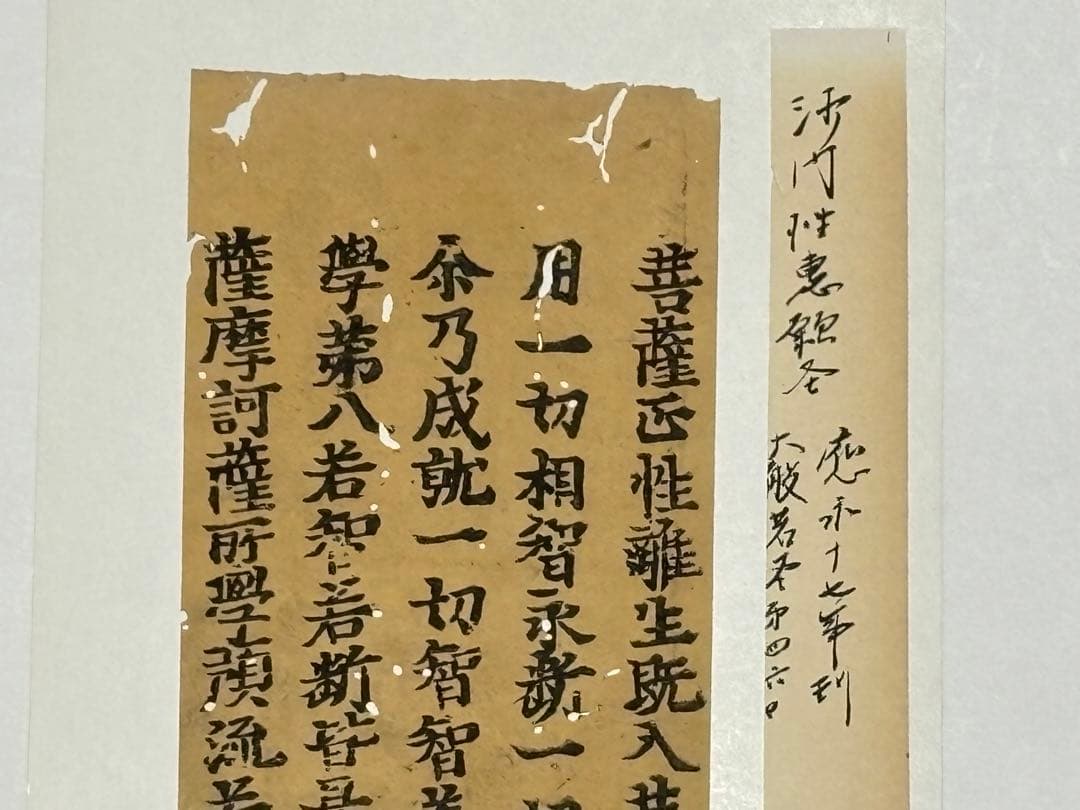 沙門性惠願经
應永十七年刊
大般若经第四六
菩薩正性離生既入菩
用一切相智永斷一切
尒乃成就一切智智若
學第八若智若斷皆是
薩摩訶薩所學預流若